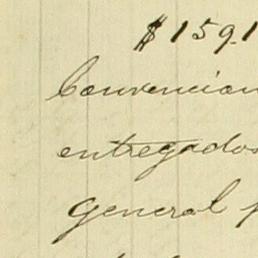 $159.1
Convencion
entregados
general p